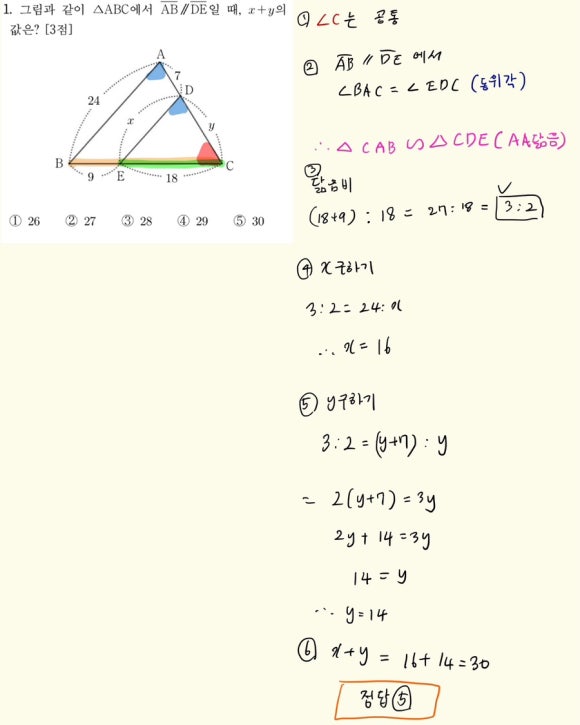 1. 그림과 같이 △ABC에서 AB∥DE일 때, x+y의
값은? [3점]
A
7
D
24
x
y
B
E
C
9
18
① 26 ② 27 ③ 28 ④ 29 ⑤ 30
① ∠C는 공통
② AB ∥ DE 에서
∠BAC = ∠EDC (동위각)
∴ △CAB ∽ △CDE (AA닮음)
③
닮음비
(18+9) : 18 = 27:18 = 3:2
④ x구하기
3:2 = 24:x
∴ x = 16
⑤ y구하기
3:2 = (y+7) : y
= 2(y+7) = 3y
2y + 14 = 3y
14 = y
∴ y = 14
⑥ x+y = 16+14=30
정답 ⑤